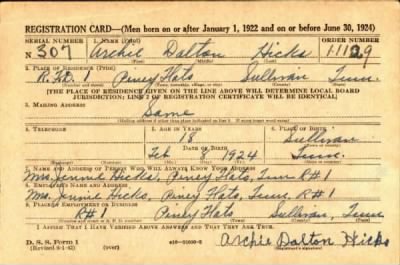 REGISTRATION CARD—(Men born on or after January 1, 1922 and on or before June 30, 1924)
SERIAL NUMBER 1. NAME (Print) ORDER NUMBER
N 307 Archie Dalton Hicks 11129
(First) (Middle) (Last)
2. PLACE OF RESIDENCE (Print)
R. #1 Piney Flats Sullivan Tenn.
(Number and street) (Town, township, village, or city) (County) (State)
[THE PLACE OF RESIDENCE GIVEN ON THE LINE ABOVE WILL DETERMINE LOCAL BOARD
JURISDICTION; LINE 2 OF REGISTRATION CERTIFICATE WILL BE IDENTICAL]
3. MAILING ADDRESS
Same
(Mailing address if other than place indicated on line 2. If same insert word same)
4. TELEPHONE 5. AGE IN YEARS 6. PLACE OF BIRTH
18 Sullivan
DATE OF BIRTH
Feb 8 1924 Tenn.
7. NAME AND ADDRESS OF PERSON WHO WILL ALWAYS KNOW YOUR ADDRESS
Mrs. Jennie Hicks, Piney Flats, Tenn R#1
8. EMPLOYER'S NAME AND ADDRESS
Mrs. Jennie Hicks, Piney Flats, Tenn R#1
9. PLACE OF EMPLOYMENT OR BUSINESS
R#1 Piney Flats Sullivan, Tenn
(Number and street or R. F. D. number) (Town) (County) (State)
I AFFIRM THAT I HAVE VERIFIED ABOVE ANSWERS AND THAT THEY ARE TRUE.
D. S. S. Form 1
(Revised 6-1-42) (over) Archie Dalton Hicks
(Registrant's signature)